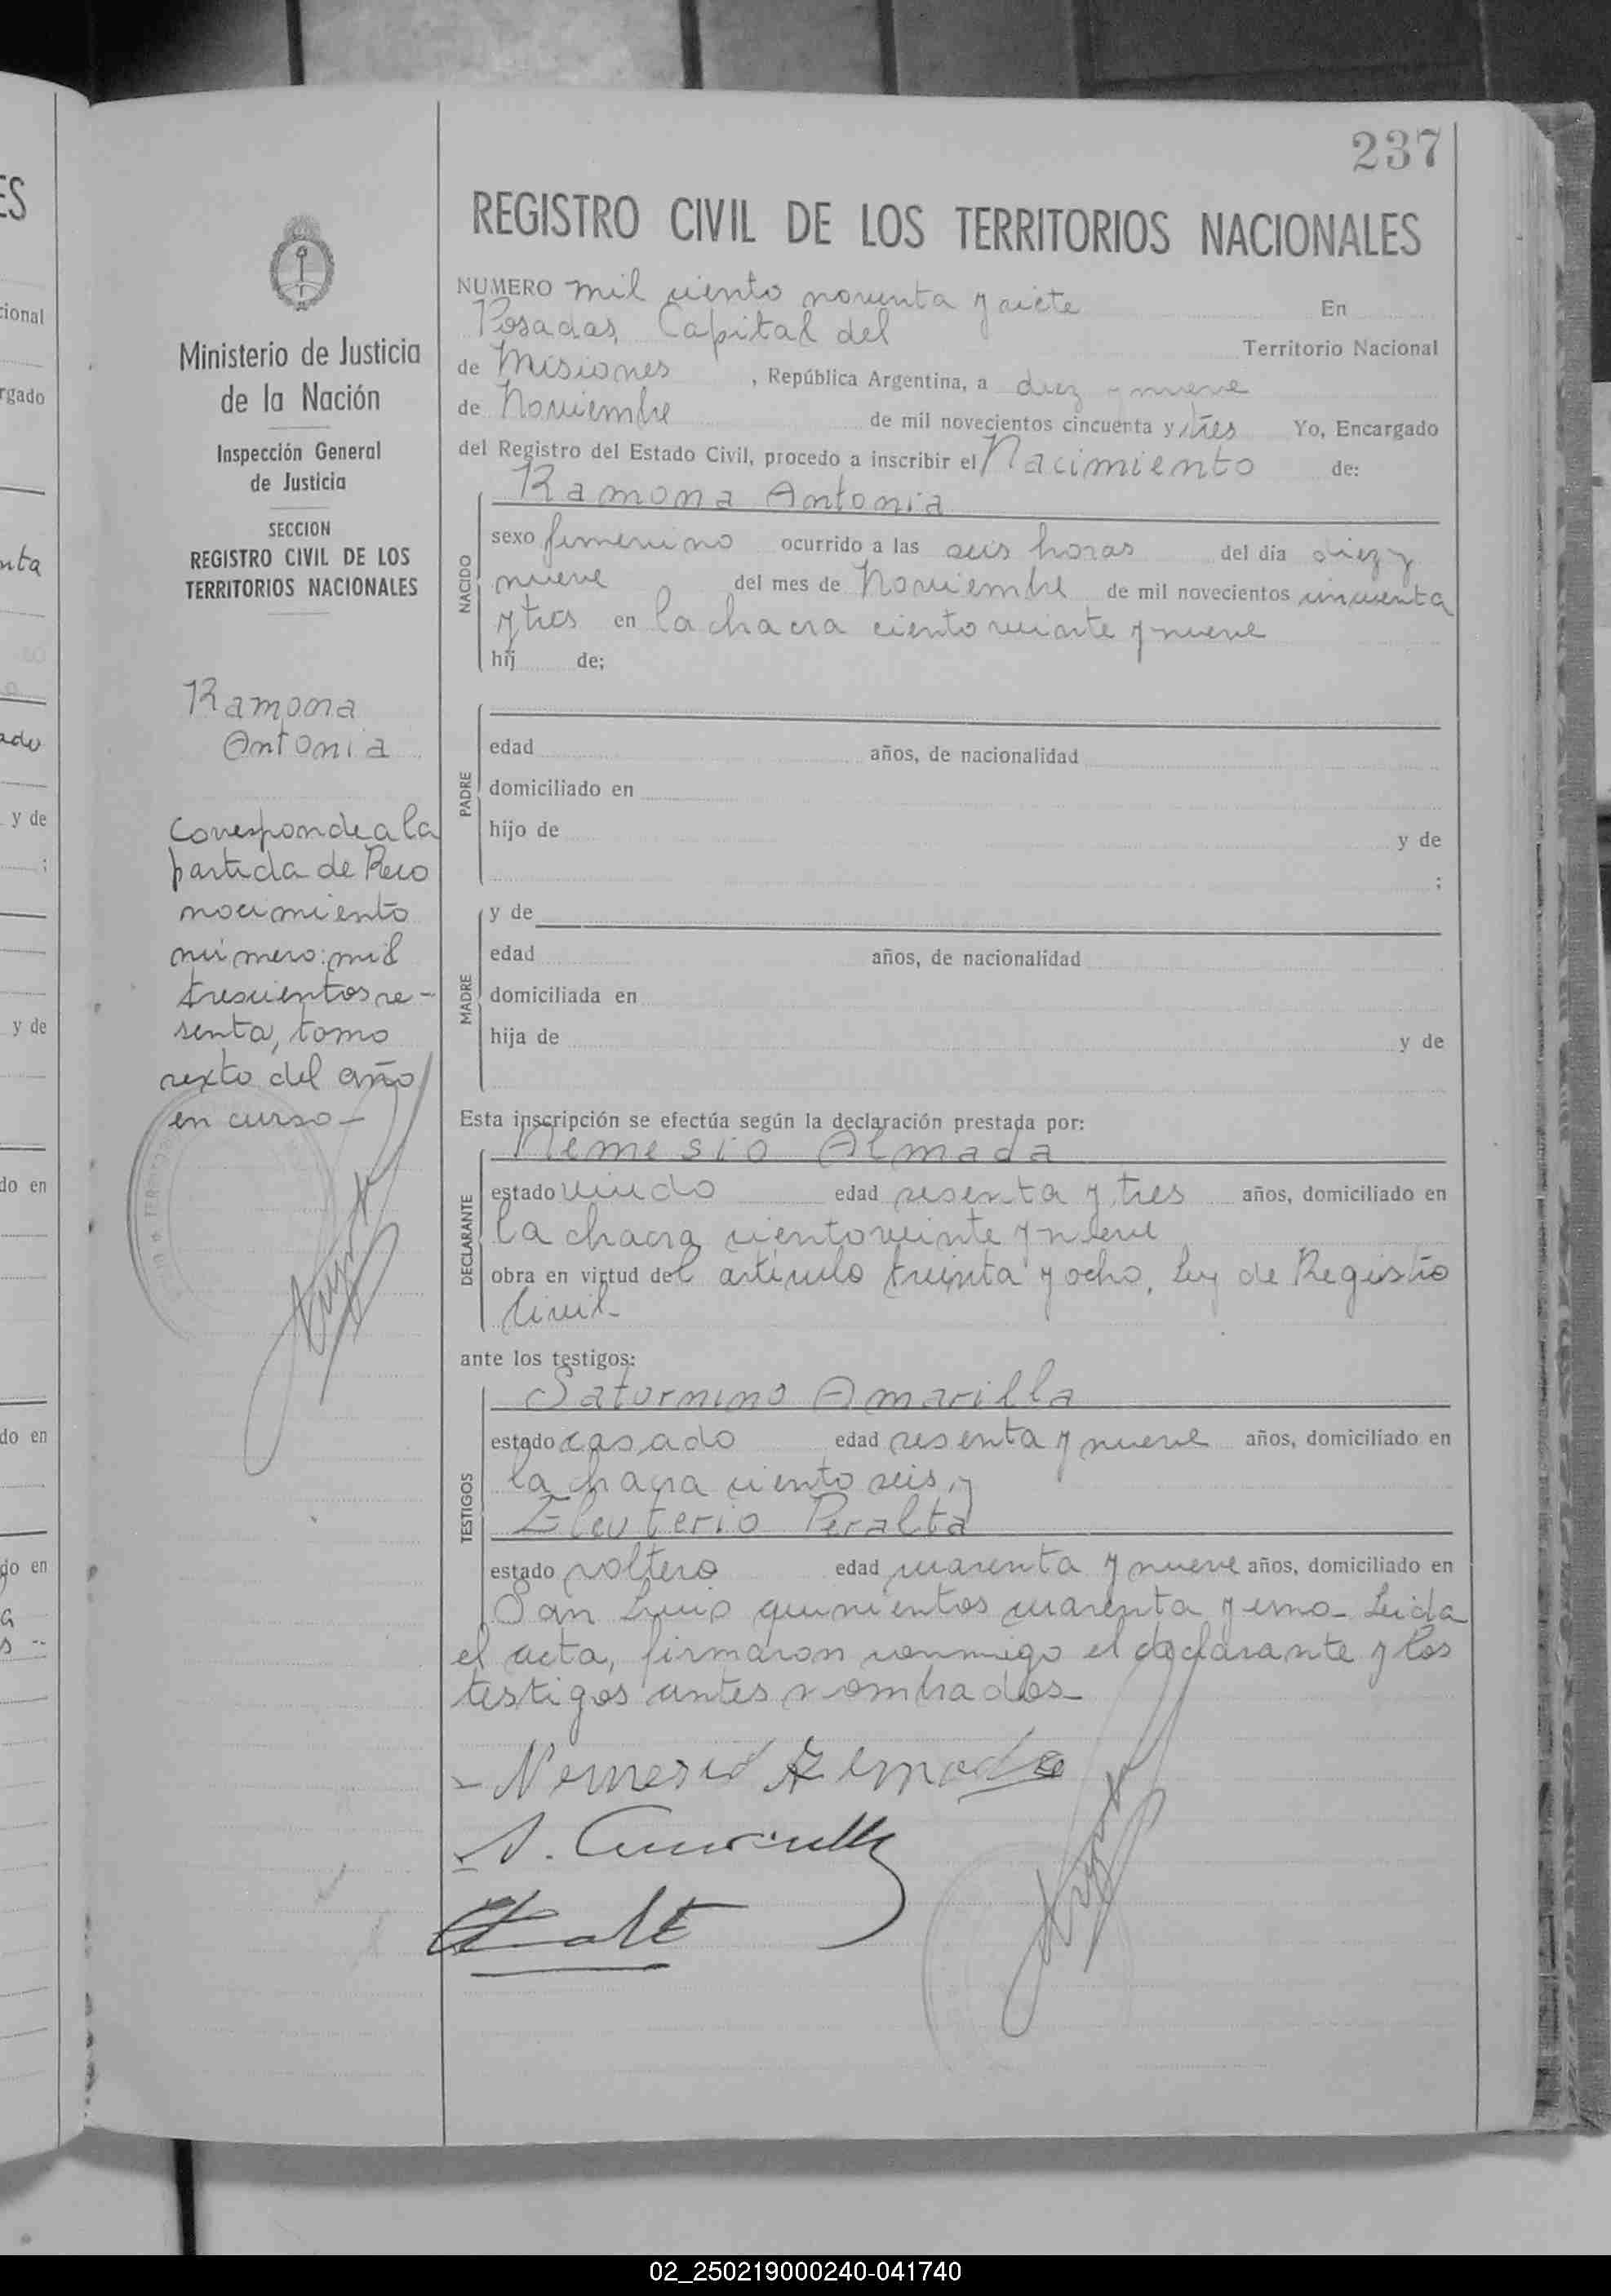 237
REGISTRO CIVIL DE LOS TERRITORIOS NACIONALES
Ministerio de Justicia
de la Nación
Inspección General
de Justicia
SECCION
REGISTRO CIVIL DE LOS
TERRITORIOS NACIONALES
Ramona
Antonia
Corresponde a la
partida de Reco
nocimiento
número: mil
trescientos se-
senta, tomo
sexto del año
en curso-
NUMERO mil ciento noventa y siete En
Posadas, Capital del Territorio Nacional
de Misiones, República Argentina, a diez y nueve
de Noviembre de mil novecientos cincuenta y tres Yo, Encargado
del Registro del Estado Civil, procedo a inscribir el Nacimiento de:
Ramona Antonia
NACIDO
sexo femenino ocurrido a las seis horas del día diez y
nueve del mes de Noviembre de mil novecientos cincuenta
y tres en la chacra ciento veinte y nueve
hij de;
PADRE
edad años, de nacionalidad
domiciliado en
hijo de y de
;
MADRE
y de
edad años, de nacionalidad
domiciliada en
hija de y de
Esta inscripción se efectúa según la declaración prestada por:
Nemesio Almada
DECLARANTE
estado viudo edad sesenta y tres años, domiciliado en
la chacra ciento veinte y nueve
obra en virtud del artículo treinta y ocho, Ley de Registro
Civil-
ante los testigos:
Saturnino Amarilla
TESTIGOS
estado casado edad sesenta y nueve años, domiciliado en
la chacra ciento seis, y
Eleuterio Peralta
estado soltero edad cuarenta y nueve años, domiciliado en
San Luis quinientos cuarenta y uno- Leida
el acta, firmaron conmigo el declarante y los
testigos antes nombrados-
- Nemesio Almada
S. Amarilla
ES
cional
rgado
nta
ado
y de
;
y de
do en
do en
do en
02_250219000240-041740